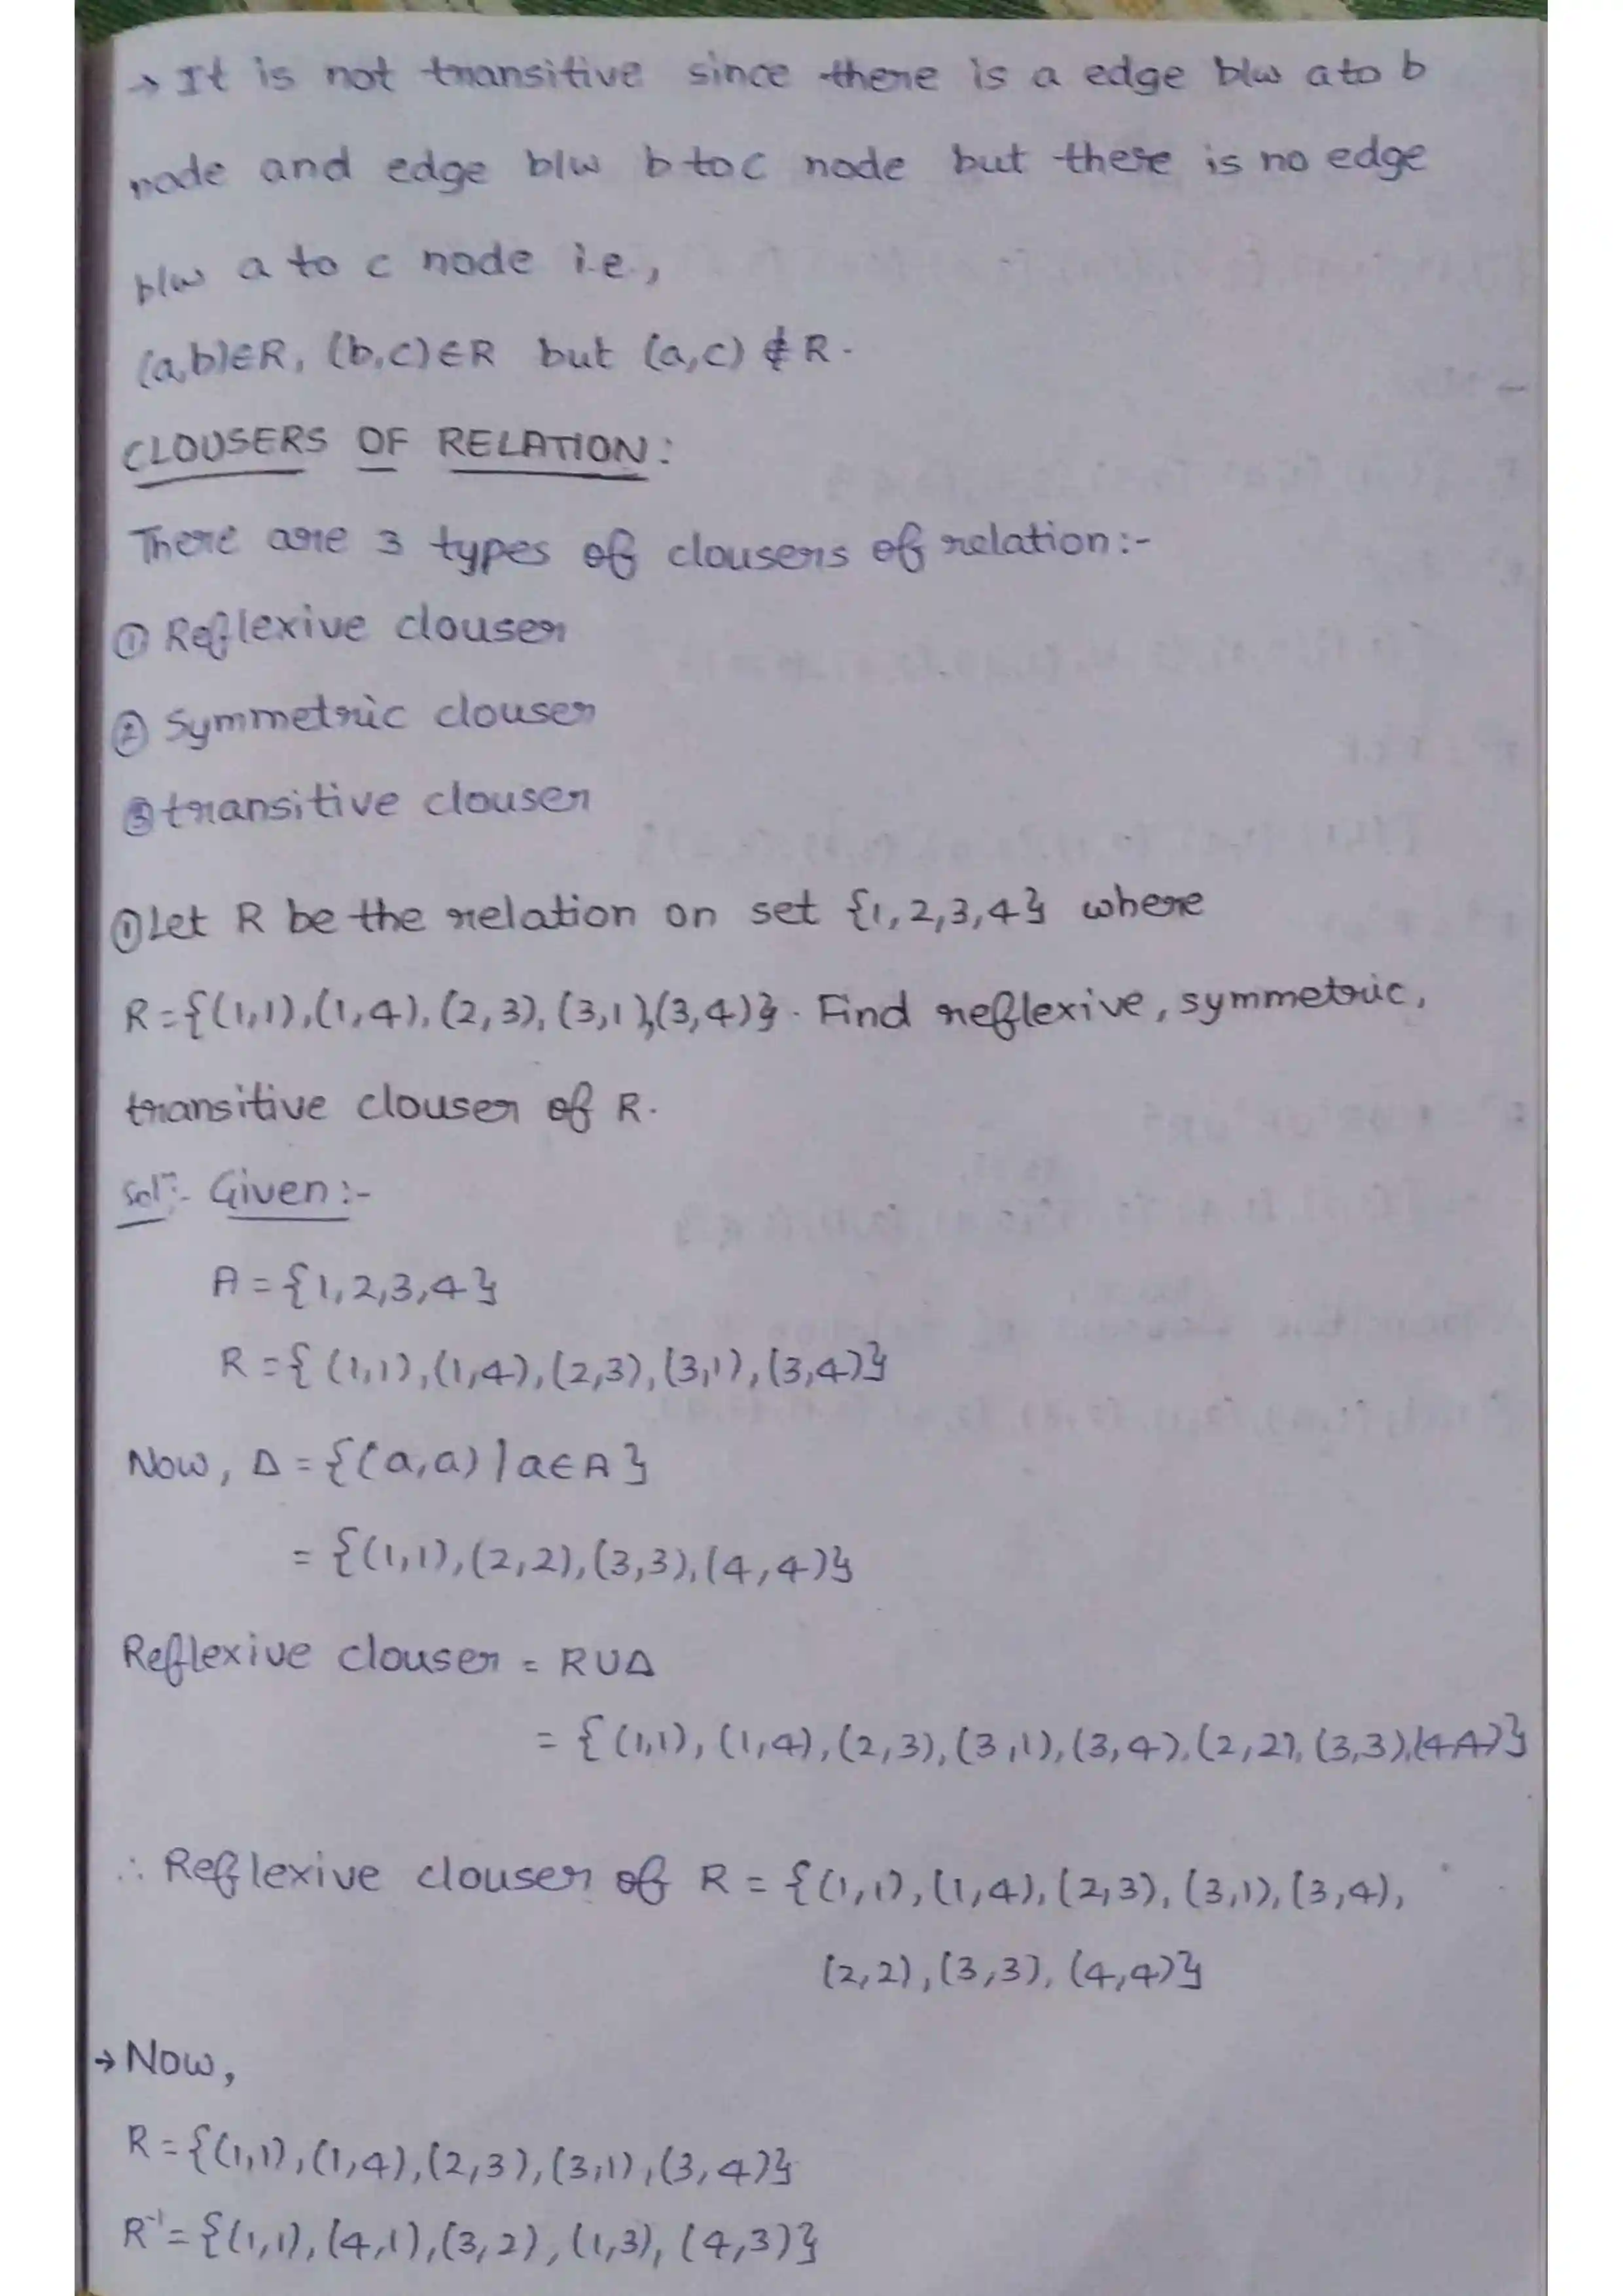 → It is not transitive since there is a edge b/w a to b
node and edge b/w b to c node but there is no edge
b/w a to c node i.e.,
(a,b)∈R, (b,c)∈R but (a,c)∉R.
CLOUSERS OF RELATION:
There are 3 types of clousers of relation:-
① Reflexive clouser
② Symmetric clouser
③ transitive clouser
① Let R be the relation on set {1,2,3,4} where
R={(1,1),(1,4),(2,3),(3,1),(3,4)}. Find reflexive, symmetric,
transitive clouser of R.
Solⁿ:- Given:-
A={1,2,3,4}
R={(1,1),(1,4),(2,3),(3,1),(3,4)}
Now, Δ={(a,a)|a∈A}
={(1,1),(2,2),(3,3),(4,4)}
Reflexive clouser = R∪Δ
={(1,1),(1,4),(2,3),(3,1),(3,4),(2,2),(3,3),(4,4)}
∴ Reflexive clouser of R={(1,1),(1,4),(2,3),(3,1),(3,4),
(2,2),(3,3),(4,4)}
→ Now,
R={(1,1),(1,4),(2,3),(3,1),(3,4)}
R⁻¹={(1,1),(4,1),(3,2),(1,3),(4,3)}